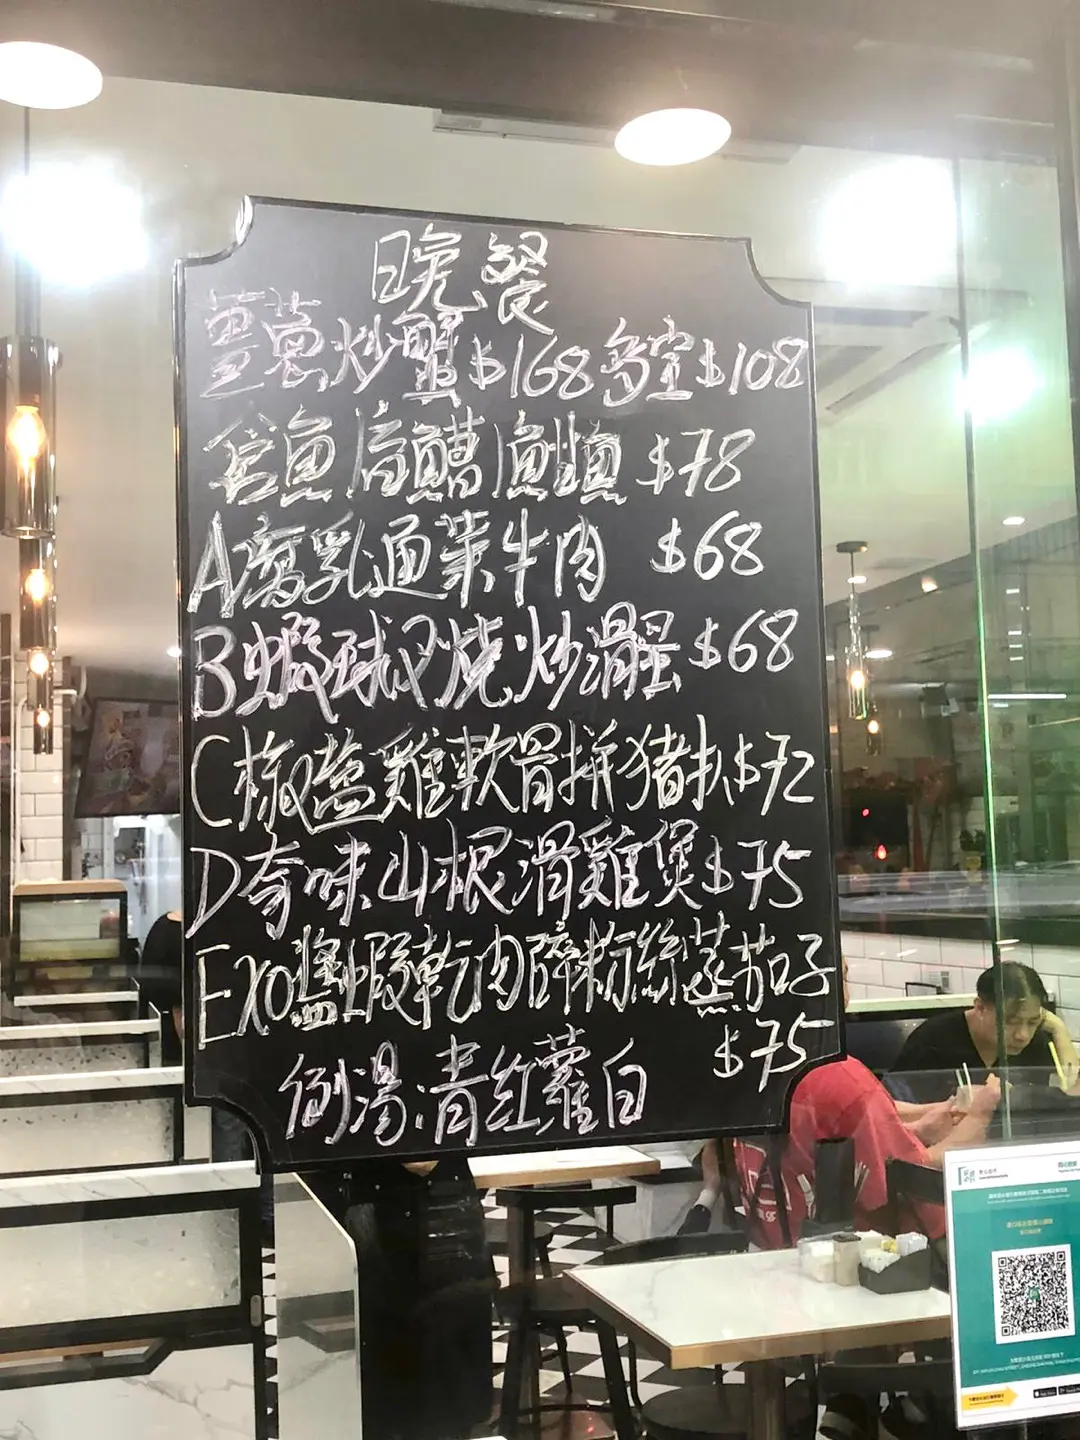 晚餐
薑蔥炒蟹$168多宝$108
倉魚 $78
A腐乳通菜牛肉 $68
B蝦球叉燒炒滑蛋$68
C椒盐雞軟骨拼猪扒$72
D奇味山根滑雞煲$75
EXO醬蝦乾肉碎粉絲蒸茄子
$75
例湯:青红蘿白